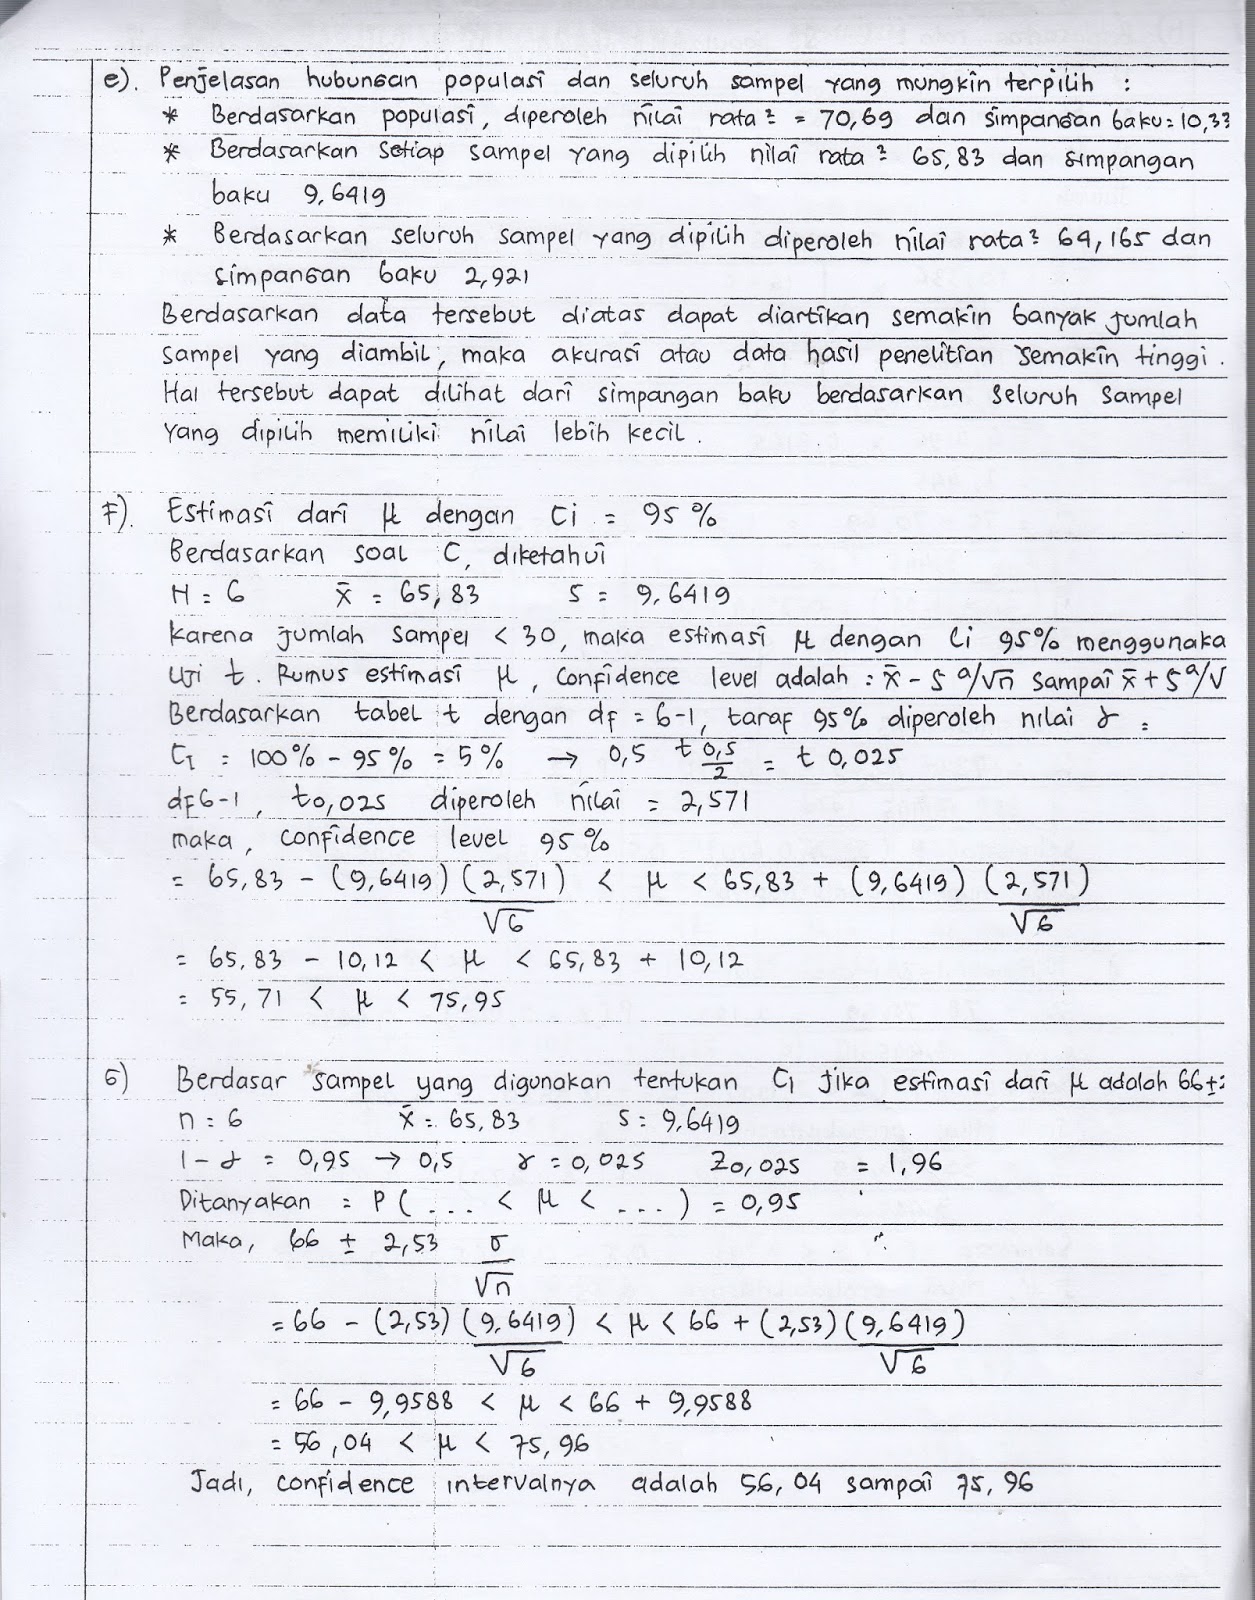 e). Penjelasan hubungan populasi dan seluruh sampel yang mungkin terpilih :
* Berdasarkan populasi, diperoleh nilai rata² = 70,69 dan simpangan baku = 10,33
* Berdasarkan setiap sampel yang dipilih nilai rata² 65,83 dan simpangan
baku 9,6419
* Berdasarkan seluruh sampel yang dipilih diperoleh nilai rata² 64,165 dan
simpangan baku 2,921
Berdasarkan data tersebut diatas dapat diartikan semakin banyak jumlah
sampel yang diambil, maka akurasi atau data hasil penelitian semakin tinggi.
Hal tersebut dapat dilihat dari simpangan baku berdasarkan seluruh sampel
yang dipilih memiliki nilai lebih kecil.
F). Estimasi dari μ dengan Ci = 95 %
Berdasarkan soal C, diketahui
H = 6 x̄ = 65,83 S = 9,6419
Karena jumlah sampel < 30, maka estimasi μ dengan Ci 95% menggunaka
Uji t. Rumus estimasi μ, confidence level adalah : x̄ - S a/√n sampai x̄ + S a/√
Berdasarkan tabel t dengan df = 6-1, taraf 95% diperoleh nilai γ =
CI = 100% - 95% = 5% → 0,5 t 0,5/2 = t 0,025
dF 6-1, t0,025 diperoleh nilai = 2,571
maka, confidence level 95 %
= 65,83 - (9,6419) (2,571)/√6 < μ < 65,83 + (9,6419) (2,571)/√6
= 65,83 - 10,12 < μ < 65,83 + 10,12
= 55,71 < μ < 75,95
G) Berdasar sampel yang digunakan tentukan CI jika estimasi dari μ adalah 66 ±
n = 6 x̄ = 65,83 S = 9,6419
1 - α = 0,95 → 0,5 γ = 0,025 Z0,025 = 1,96
Ditanyakan = P ( ... < μ < ... ) = 0,95
Maka, 66 ± 2,53 σ/√n
= 66 - (2,53) (9,6419)/√6 < μ < 66 + (2,53) (9,6419)/√6
= 66 - 9,9588 < μ < 66 + 9,9588
= 56,04 < μ < 75,96
Jadi, confidence intervalnya adalah 56,04 sampai 75,96